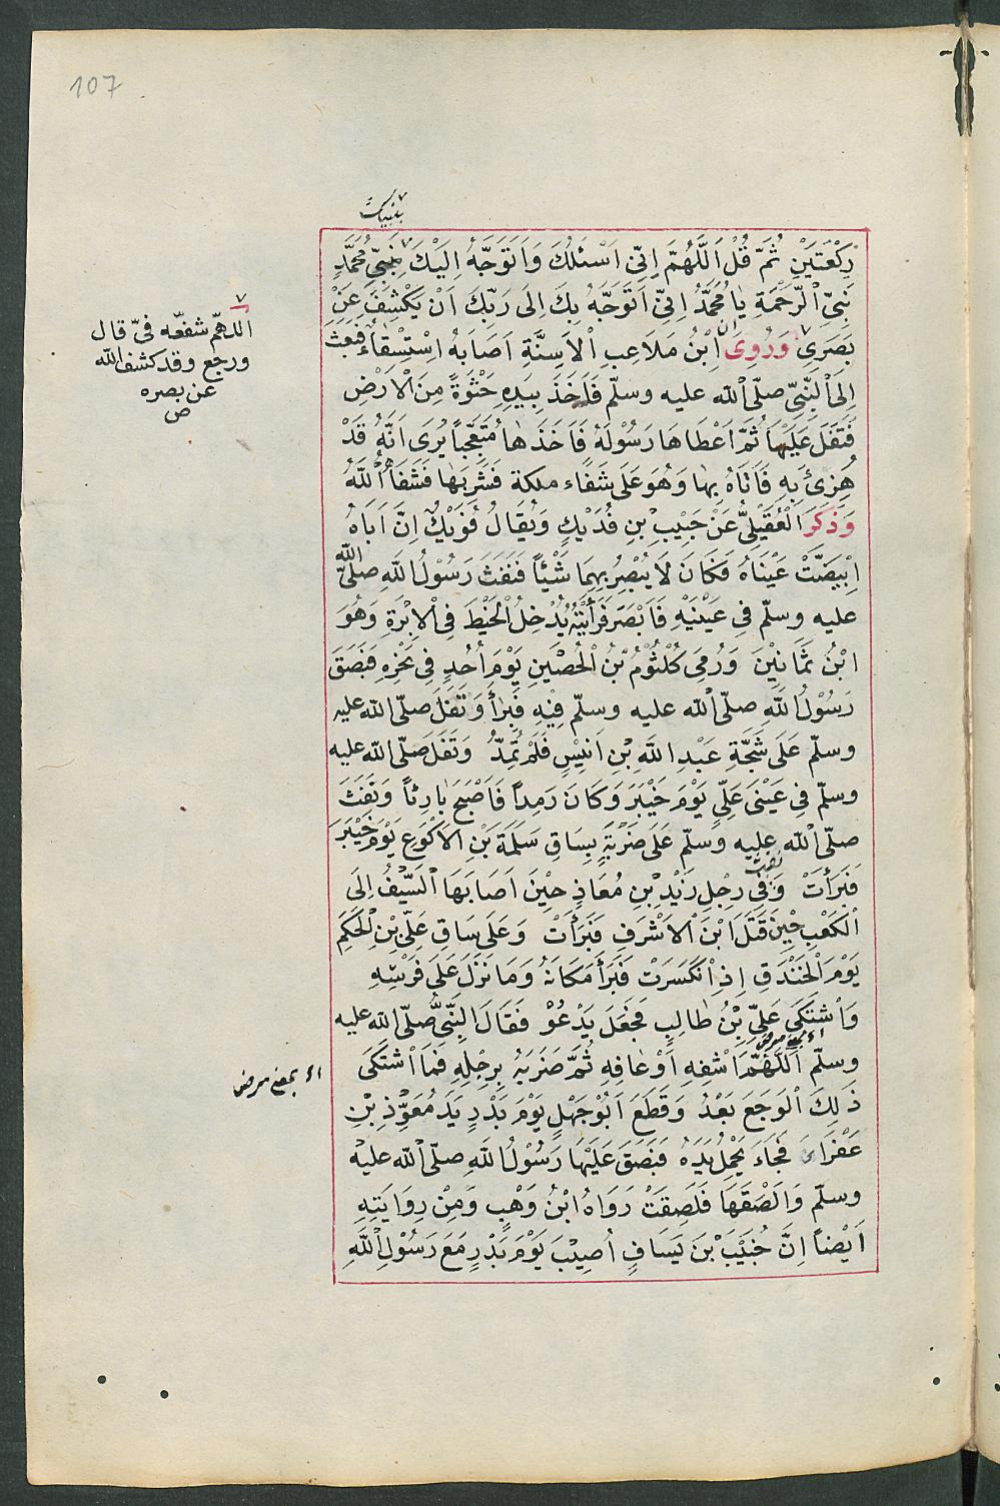 107
بنبيك
رَكْعَتَيْنِ ثُمَّ قُلْ اَللّٰهُمَّ اِنّى اَسْئَلُكَ وَاَتَوَجَّهُ اِلَيْكَ بِنَبِيِّ مُحَمَّدٍ
نَبِيِّ الْرَّحْمَةِ يٰا مُحَمَّدُ اِنّى اَتَوَجَّهُ بِكَ اِلَى رَبِّكَ اَنْ يَكْشِفَ عَنْ
بَصَرِى وَرُوِىَ ان اِبْنُ مَلَاعِبِ الْاَسِنَّةِ اَصَابَهُ اسْتِسْقَاءٌ فَبَعَثَ
اِلَى الْنَّبِىِّ صلّى الله عليه وسلّم فَاَخَذَ بِيَدِهِ حَثْوَةً مِنَ الْاَرْضِ
فَتَفَلَ عَلَيْهَا ثُمَّ اَعْطَاهَا رَسُوْلَهُ فَاَخَذَهٰا مُتَعَجِّباً يُرَى اَنَّهُ قَدْ
هُزِئَ بِهِ فَاَتَاهُ بِهٰا وَهُوَ عَلَى شَفَاء مهلكة فَشَرِبَهٰا فَشَفَاهُ اللّٰهُ
وَذَكَرَ الْعُقَيْلِىُّ عَنْ حَبِيْبِ بْنِ فُدَيْكٍ وَيُقَالُ فُوَيْكٌ اِنَّ اَبَاهُ
اِبْيَضَّتْ عَيْنَاهُ فَكَانَ لَا يُبْصِرُ بِهِمَا شَيْئاً فَنَفَثَ رَسُوْلُ اللّٰهِ صلّى الله
عليه وسلّم فِى عَيْنَيْهِ فَاَبْصَرَ فَرَأَيْتُهُ يُدْخِلُ الْخَيْطَ فِى الْاِبْرَةِ وَهُوَ
ابْنُ ثَمَانِيْنَ وَرُمِىَ كُلْثُوْمُ بْنُ الْحُصَيْنِ يَوْمَ اُحُدٍ فِى نَحْرِهِ فَبَصَقَ
رَسُوْلُ اللّٰهِ صلّى الله عليه وسلّم فِيْهِ فَبَرَأَ وَتَفَلَ صلّى الله عليه
وسلّم عَلَى شَجَّةِ عَبْدِ اللّٰهِ بْنِ اَنِيْسٍ فَلَمْ تُمِدَّ وَتَفَلَ صَلّى الله عليه
وسلّم فِى عَيْنَىْ عَلِىٍّ يَوْمَ خَيْبَرَ وَكَانَ رَمِداً فَاَصْبَحَ بٰارِئاً وَنَفَثَ
صلّى الله عليه وسلّم عَلَى ضَرْبَةٍ بِسَاقِ سَلَمَةَ بْنِ الْاَكْوَعِ يَوْمَ خَيْبَرَ
فَبَرَأَتْ وَفِى رِجْلِ زَيْدِ بْنِ مُعَاذٍ حِيْنَ اَصَابَهَا السَّيْفُ اِلَى
الْكَعْبِ حِيْنَ قَتَلَ ابْنَ الْاَشْرَفِ فَبَرَأَتْ وَعَلَى سَاقِ عَلِىِّ بْنِ الْحَكَمِ
يَوْمَ الْخَنْدَقِ اِذِ انْكَسَرَتْ فَبَرَأَ مَكَانَهُ وَمَا نَزَلَ عَلَى فَرَسِهِ
وَاشْتَكَى عَلِىُّ بْنُ طٰالِبٍ فَجَعَلَ يَدْعُوْ فَقَالَ الْنَّبِىُّ صلّى الله عليه
وسلّم اَللّٰهُمَّ اشْفِهِ اَوْ عٰافِهِ ثُمَّ ضَرَبَهُ بِرِجْلِهِ فَمَا اشْتَكَى
ذٰلِكَ الْوَجَعَ بَعْدُ وَقَطَعَ اَبُوْ جَهْلٍ يَوْمَ بَدْرٍ يَدَ مُعَوِّذِ بْنِ
عَفْرَاءَ فَجَاءَ يَحْمِلُ يَدَهُ فَبَصَقَ عَلَيْهَا رَسُوْلُ اللّٰهِ صلّى الله عليه
وسلّم وَاَلْصَقَهَا فَلَصِقَتْ رَوَاهُ ابْنُ وَهْبٍ وَمِنْ رِوَايَتِهِ
اَيْضاً اِنَّ خُبَيْبَ بْنَ يَسَافٍ اُصِيْبَ يَوْمَ بَدْرٍ مَعَ رَسُوْلِ اللّٰهِ
اللهمّ شفعّه فىّ قال
ورجع وقد كشف الله
عن بصره
ص
اى بمعنى مرض